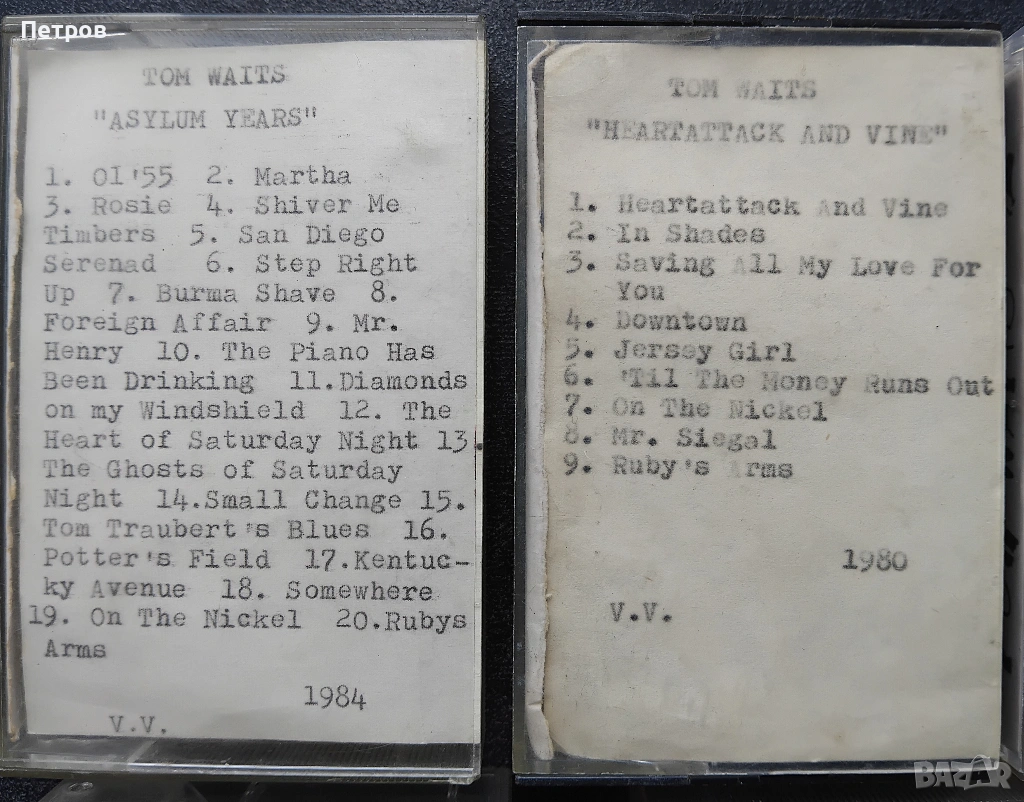 Петров
TOM WAITS
"ASYLUM YEARS"
1. Ol'55 2. Martha
3. Rosie 4. Shiver Me
Timbers 5. San Diego
Serenad 6. Step Right
Up 7. Burma Shave 8.
Foreign Affair 9. Mr.
Henry 10. The Piano Has
Been Drinking 11.Diamonds
on my Windshield 12. The
Heart of Saturday Night 13.
The Ghosts of Saturday
Night 14.Small Change 15.
Tom Traubert's Blues 16.
Potter's Field 17.Kentuc-
ky Avenue 18. Somewhere
19. On The Nickel 20.Rubys
Arms
1984
V.V.
TOM WAITS
"HEARTATTACK AND VINE"
1. Heartattack And Vine
2. In Shades
3. Saving All My Love For
You
4. Downtown
5. Jersey Girl
6. 'Til The Money Runs Out
7. On The Nickel
8. Mr. Siegal
9. Ruby's Arms
1980
V.V.
BAZAR